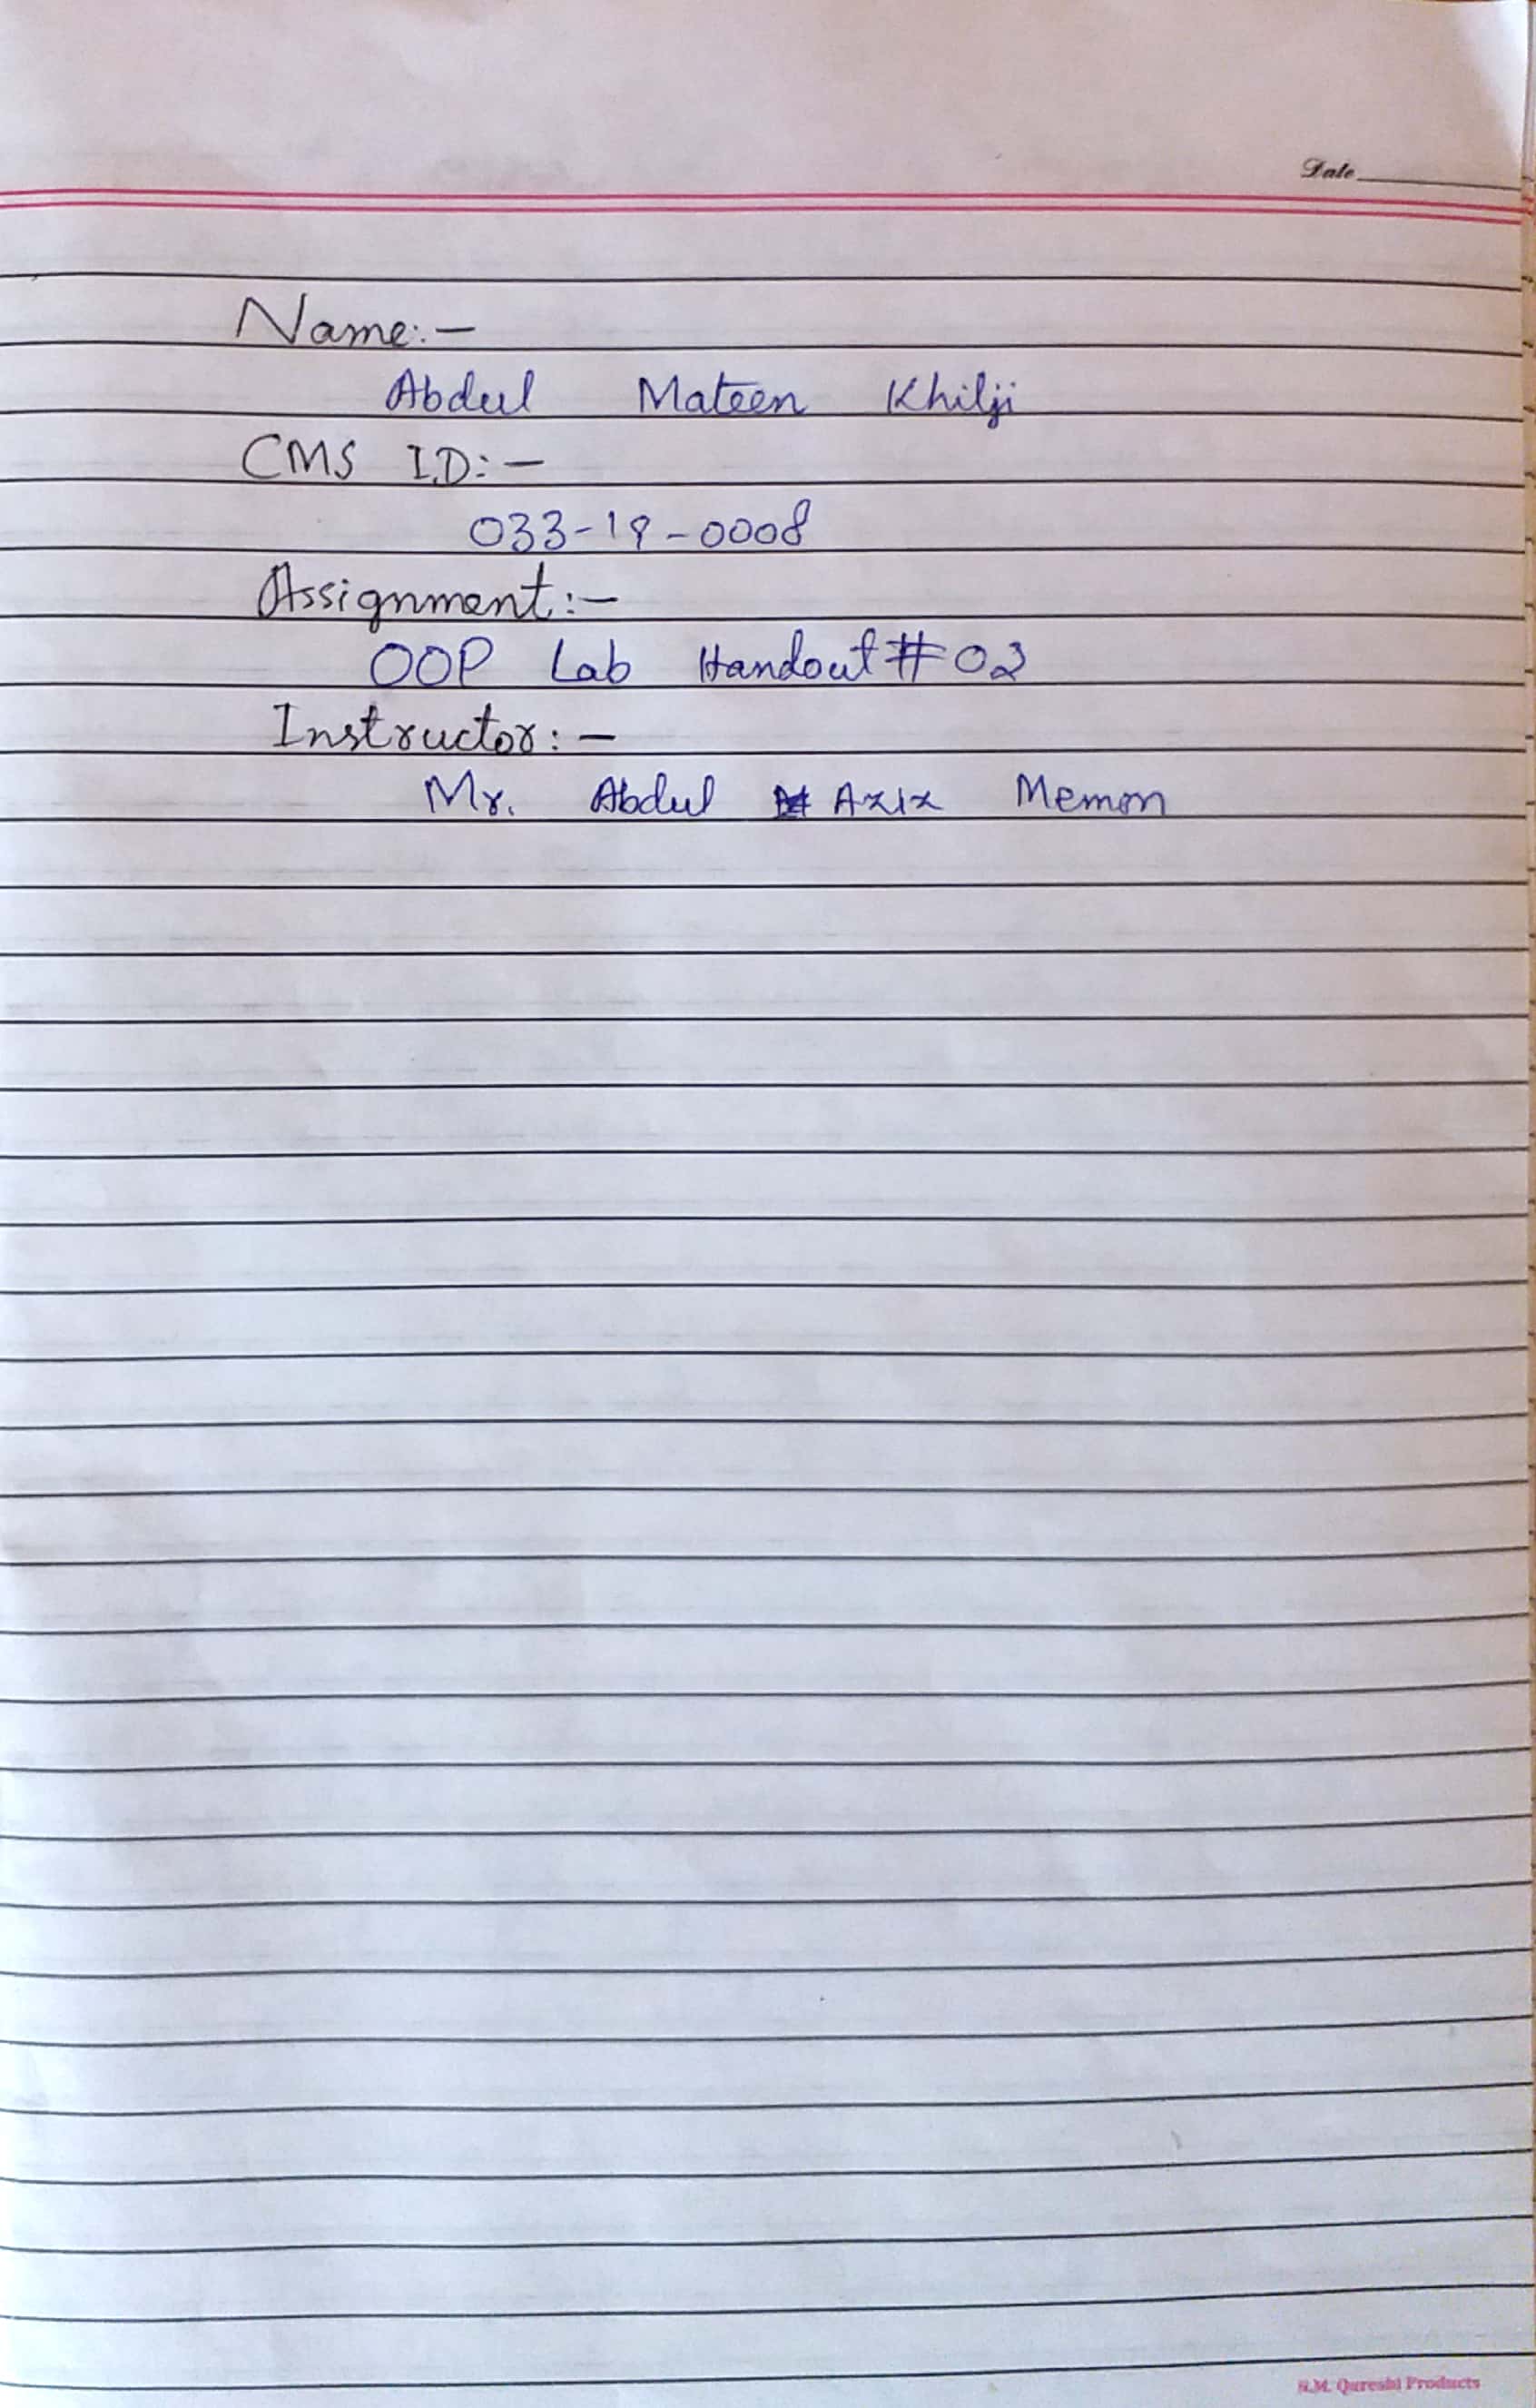 Date
Name:-
Abdul Mateen Khilji
CMS I.D:-
033-19-0008
Assignment:-
OOP Lab Handout # 02
Instructor:-
Mr. Abdul Aziz Memon
S.M. Qureshi Products